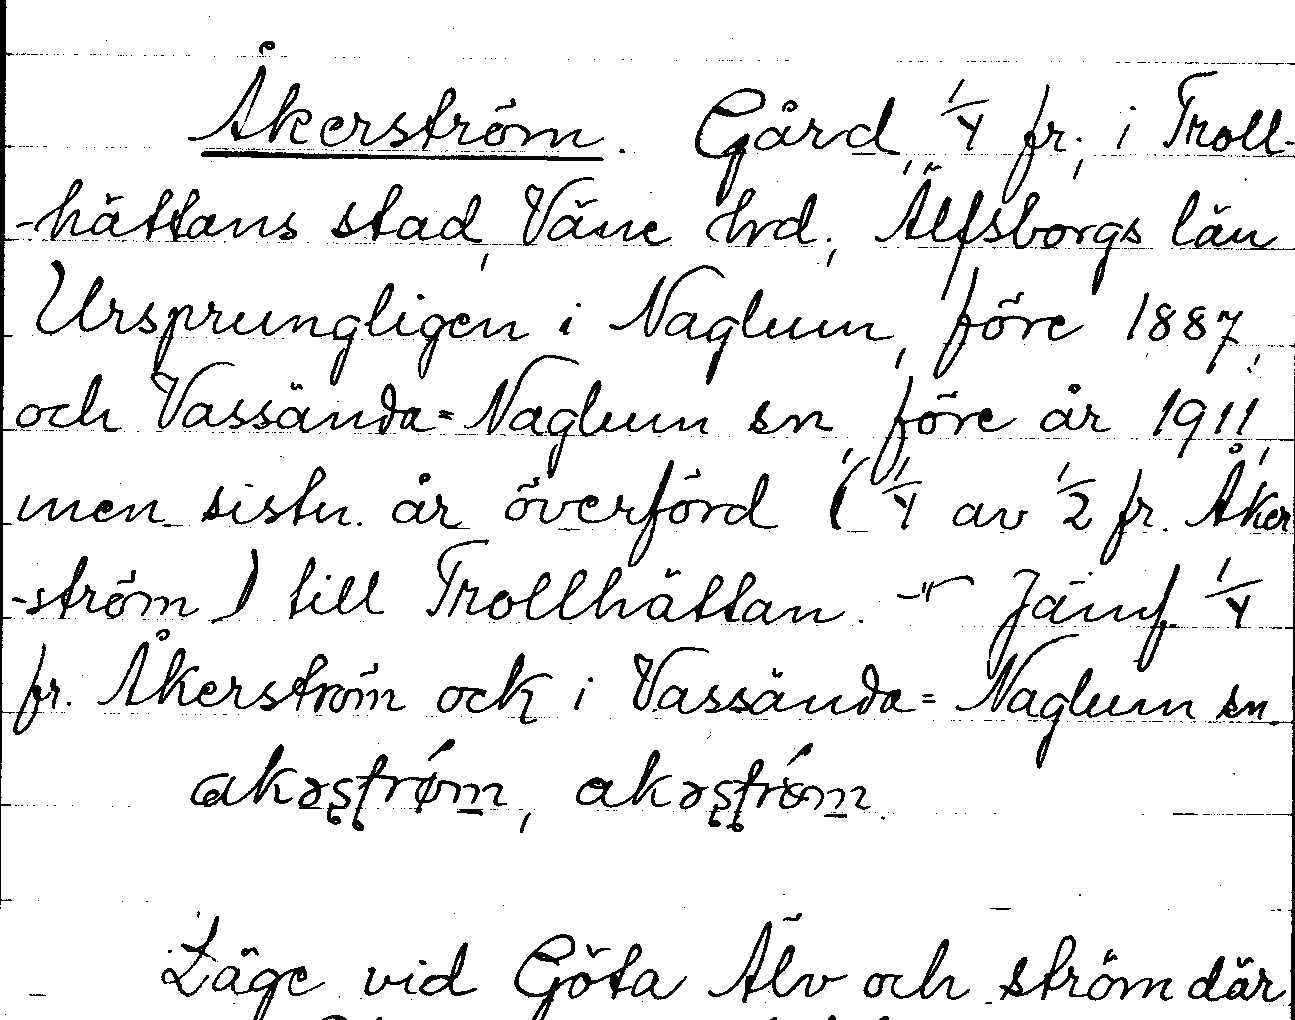 Åkerström. Gård, 1/4 fr., i Troll-
-hättans stad, Väne hrd., Älfsborgs län
Ursprungligen i Naglum, före 1887,
och Vassända=Naglum sn, före år 1911,
men sistn. år överförd (1/4 av 1/2 fr. Åker
-ström) till Trollhättan. -"- Jämf. 1/4
fr. Åkerström ock i Vassända=Naglum sn.
Läge vid Göta Älv och ström där